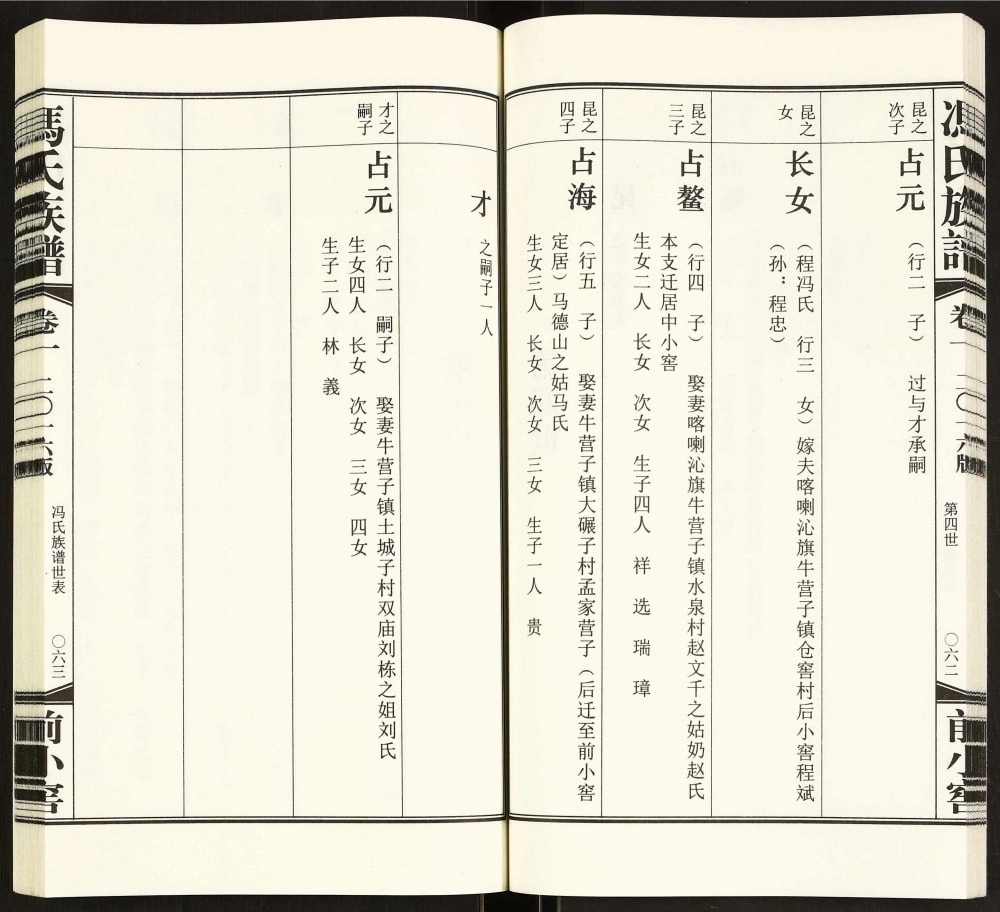 馮氏族譜
卷一
二〇一六版
第四世
〇六二
前小窖
昆之
次子
占元
（行二 子） 过与才承嗣
昆之
女
长女
（程冯氏 行三 女）嫁夫喀喇沁旗牛营子镇仓窖村后小窖程斌
（孙：程忠）
昆之
三子
占鳌
（行四 子） 娶妻喀喇沁旗牛营子镇水泉村赵文千之姑奶赵氏
本支迁居中小窖
生女二人 长女 次女 生子四人 祥 选 瑞 璋
昆之
四子
占海
（行五 子） 娶妻牛营子镇大碾子村孟家营子（后迁至前小窖
定居）马德山之姑马氏
生女三人 长女 次女 三女 生子一人 贵
才
之嗣子一人
才之
嗣子
占元
（行二 嗣子） 娶妻牛营子镇土城子村双庙刘栋之姐刘氏
生女四人 长女 次女 三女 四女
生子二人 林 義
馮氏族譜
卷一
二〇一六版
冯氏族谱世表
〇六三
前小窖